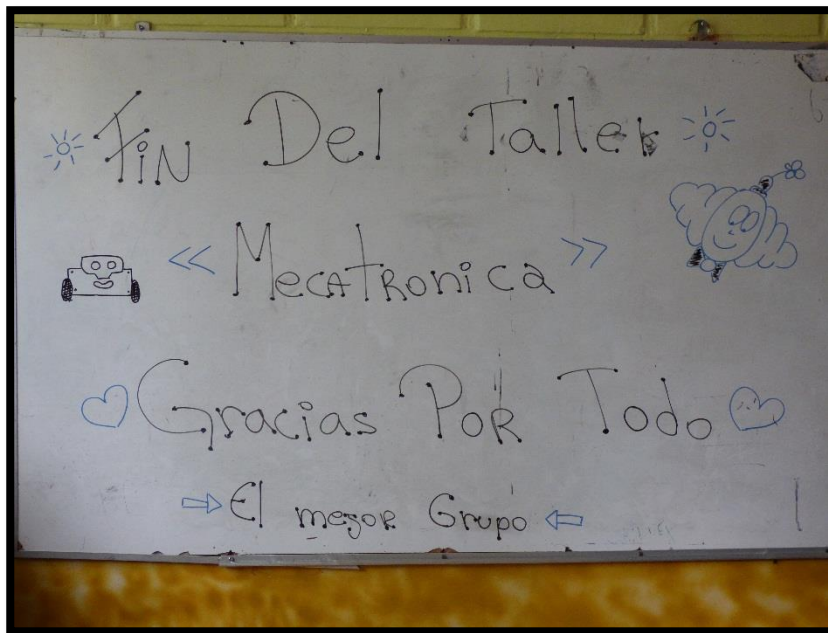 Fin Del Taller
<< Mecatronica >>
Gracias Por Todo
El mejor Grupo